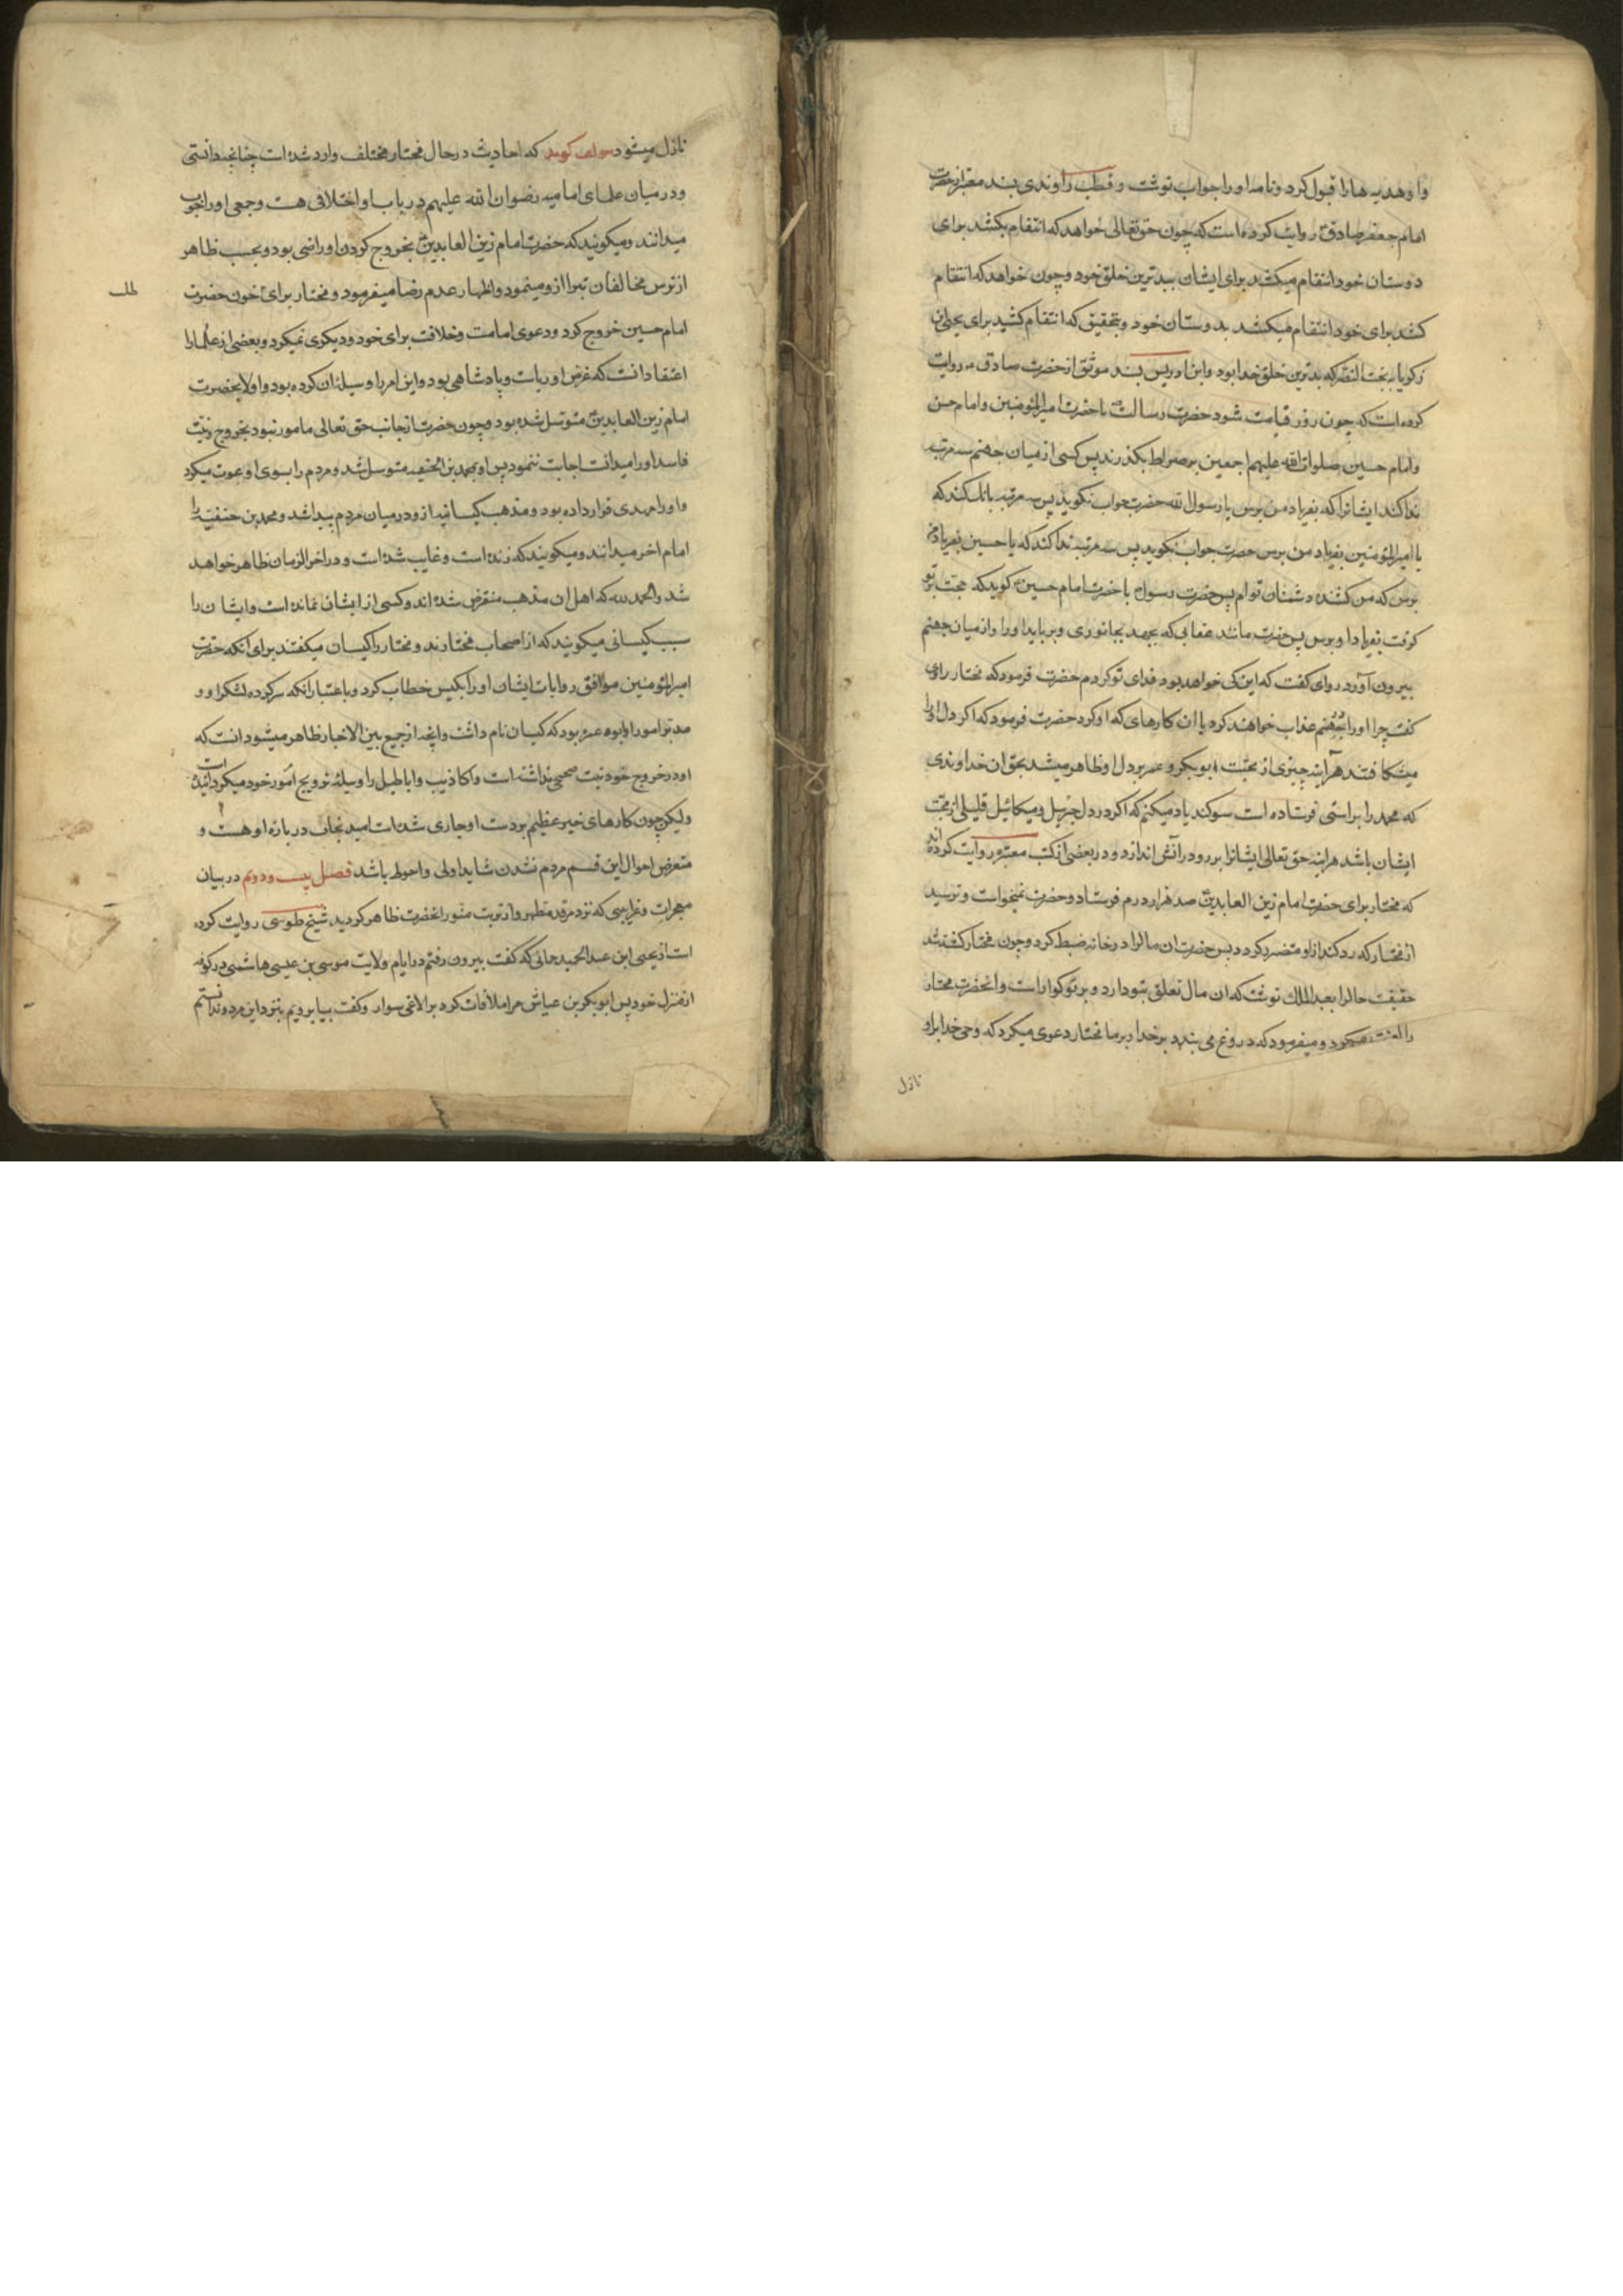 و او هدیه ها را قبول کرد و نامه او را جواب نوشت و قطب راوندی بسند معتبر از حضرت
امام جعفر صادق ع روایت کرده است که چون حق تعالی خواهد که انتقام بکشد برای
دوستان خود انتقام میکشد برای ایشان ببدترین خلق خود و چون خواهد که انتقام
کشد برای خود انتقام میکشد بدوستان خود و بتحقیق که انتقام کشید برای یحیی بن
زکریا به بخت النصر که بدترین خلق خدا بود و ابن ادریس بسند موثق از حضرت صادق ع روایت
کرده است که چون روز قیامت شود حضرت رسالت ص با حضرت امیرالمؤمنین و امام حسن
و امام حسین صلوات الله علیهم اجمعین بر صراط بگذرند پس کسی از میان جهنم سه مرتبه
ندا کند ایشانرا که بفریاد من برس یا رسول الله حضرت جواب نگوید پس سه مرتبه بانک کند که
یا امیرالمؤمنین بفریاد من برس حضرت جواب نگوید پس سه مرتبه ندا کند که یا حسین بفریاد من
برس که من کشنده دشمنان توام پس حضرت رسول با حضرت امام حسین ع کوید که حجت بر تو
کرفت بفریاد او برس پس حضرت مانند عقابی که بجهد بجانوری و برباید او را از میان جهنم
بیرون آورد راوی کفت که این کی خواهد بود فدای تو کردم حضرت فرمود که مختار راوی
کفت چرا او را بجهنم عذاب خواهند کرد با ان کارهای که او کرد حضرت فرمود که اکر دل او را
میشکافتند هرآینه چیزی از محبت ابوبکر و عمر بر دل او ظاهر میشد بحق ان خداوندی
که محمد را براستی فرستاده است سوکند یاد میکنم که اکر در دل جبرئیل و میکائیل قلیلی از محبت
ایشان باشد هراینه حق تعالی ایشانرا بر رو در آتش اندازد و در بعضی از کتب معتبره روایت کرده اند
که مختار برای حضرت امام زین العابدین ع صد هزار درم فرستاد و حضرت نمیخواست و ترسید
از مختار که رد کند از او متضرر کردد پس حضرت ان مال را در خانه ضبط کرد و چون مختار کشته شد
حقیقت حال را بعبد الملک نوشت که ان مال تعلق بتو دارد و بر تو کوارا است و انحضرت مختار
را لعنت میکرد و میفرمود که دروغ می بندد بر خدا و بر ما مختار دعوی میکرد که وحی خدا بر او
نازل
نازل میشود مولف کوید که احادیث در حال مختار مختلف وارد شده است چنانچه دانستی
و در میان علمای امامیه رضوان الله علیهم در باب او اختلافی هست و جمعی او را خوب
میدانند و میکویند که حضرت امام زین العابدین ع بخروج کردن او راضی بود و بحسب ظاهر
از ترس مخالفان تبرا ازو مینمود و اظهار عدم رضا میفرمود و مختار برای خون حضرت
امام حسین خروج کرد و دعوی امامت و خلافت برای خود و دیکری نمیکرد و بعضی از علما را
اعتقاد انست که غرض او ریاست و پادشاهی بود و این امر را وسیله ان کرده بود و اولا بحضرت
امام زین العابدین ع متوسل شده بود و چون حضرت از جانب حق تعالی مامور نبود بخروج و نیت
فاسد او را میدانست اجابت ننمود پس او بمحمد بن الحنفیه متوسل شد و مردم را بسوی او دعوت میکرد
و او را مهدی قرار داده بود و مذهب کیسانیه از و در میان مردم پیدا شد و محمد بن حنفیه را
امام اخر میدانند و میکویند که زنده است و غایب شده است و در اخر الزمان ظاهر خواهد
شد والحمد لله که اهل ان مذهب منقرض شده اند و کسی از ایشان نمانده است و ایشان را
سبب کیسانی میکویند که از اصحاب مختارند و مختار را کیسان میکفتند برای آنکه حضرت
امیرالمؤمنین موافق روایات ایشان او را بکیس خطاب کرد و باعتبار آنکه سرکرده لشکر او و
مدبر امور او ابو عمره بود که کیسان نام داشت و انچه از جمع بین الاخبار ظاهر میشود انست که
او در خروج خود نیت صحیحی نداشته است و اکاذیب و اباطیل را وسیله ترویج امور خود میکردانیده است
ولیکن چون کارهای خیر عظیم بر دست او جاری شده است امید نجات درباره او هست و
متعرض احوال این قسم مردم نشدن شاید اولی و احوط باشد فصل بیست و دوم در بیان
معجزات و غرایبی که نزد مرقد مطهر و از تربت منور انحضرت ظاهر کردید شیخ طوسی روایت کرده
است از یحیی ابن عبد الحمید حمانی که کفت بیرون رفتم در ایام ولایت موسی بن عیسی هاشمی در کوفه
از منزل خود پس ابوبکر بن عیاش مرا ملاقات کرد بر الاغی سوار و کفت بیا برویم بنزد این مرد و ندانستم